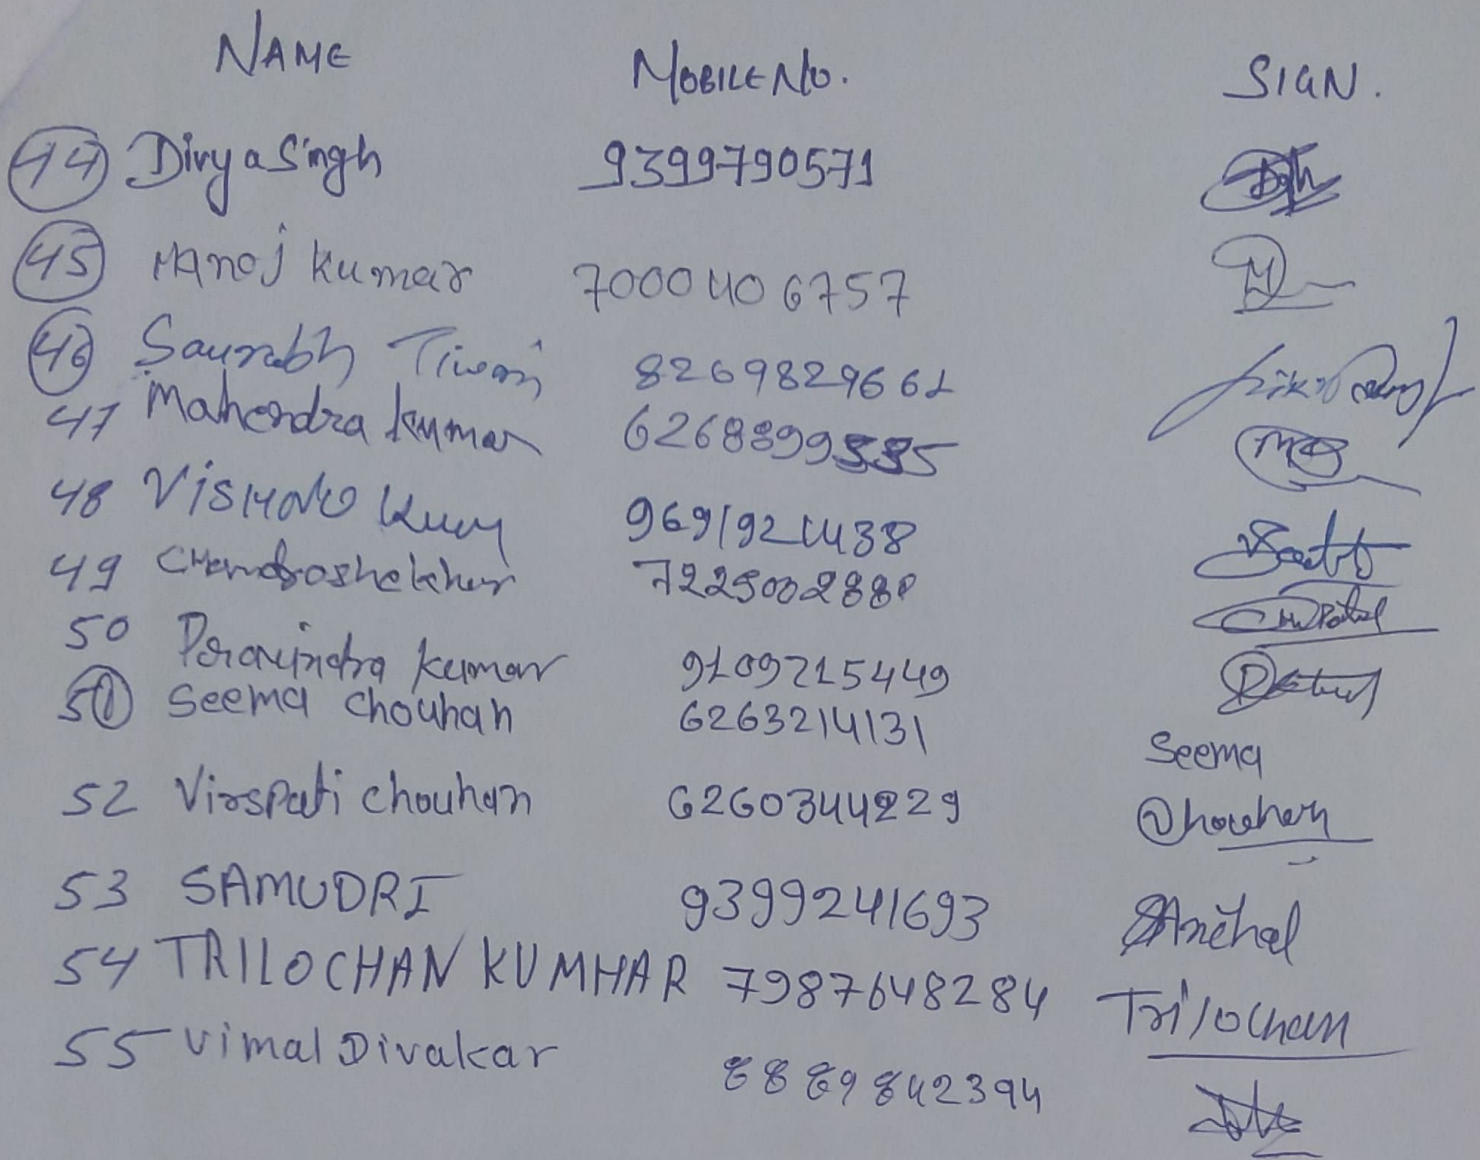 NAME MOBILE No. SIGN.
44 Divya Singh 9399790571
45 Manoj Kumar 7000406757
46 Saurabh Tiwari 8269829661
47 Mahendra Kumar 6268899
48 9691921438
49 Chandrashekhar
50 Poravindra Kumar 9109215449
51 Seema Chouhan 6263214131 Seema
52 Virspati Chouhan 6260344229 Chouhan
53 SAMUDRI 9399241693 Anchal
54 TRILOCHAN KUMHAR 7987648284 Trilochan
55 Vimal Divakar 8889842394